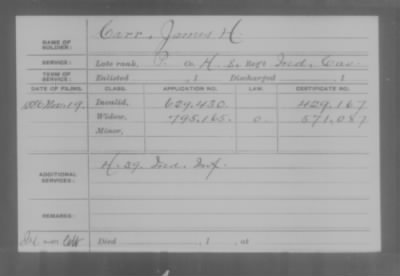 NAME OF SOLDIER: Carr, James H.
SERVICE: Late rank, P. Co. H, 3, Reg't Ind. Cav.
TERM OF SERVICE: Enlisted , 1 Discharged , 1
DATE OF FILING. CLASS. APPLICATION NO. LAW. CERTIFICATE NO.
1886 Nov. 19. Invalid, 629.430. 429.167
Widow, 795.165. 571.087
Minor,
ADDITIONAL SERVICES: H. 39. Ind. Inf.
REMARKS:
Died , 1 , at